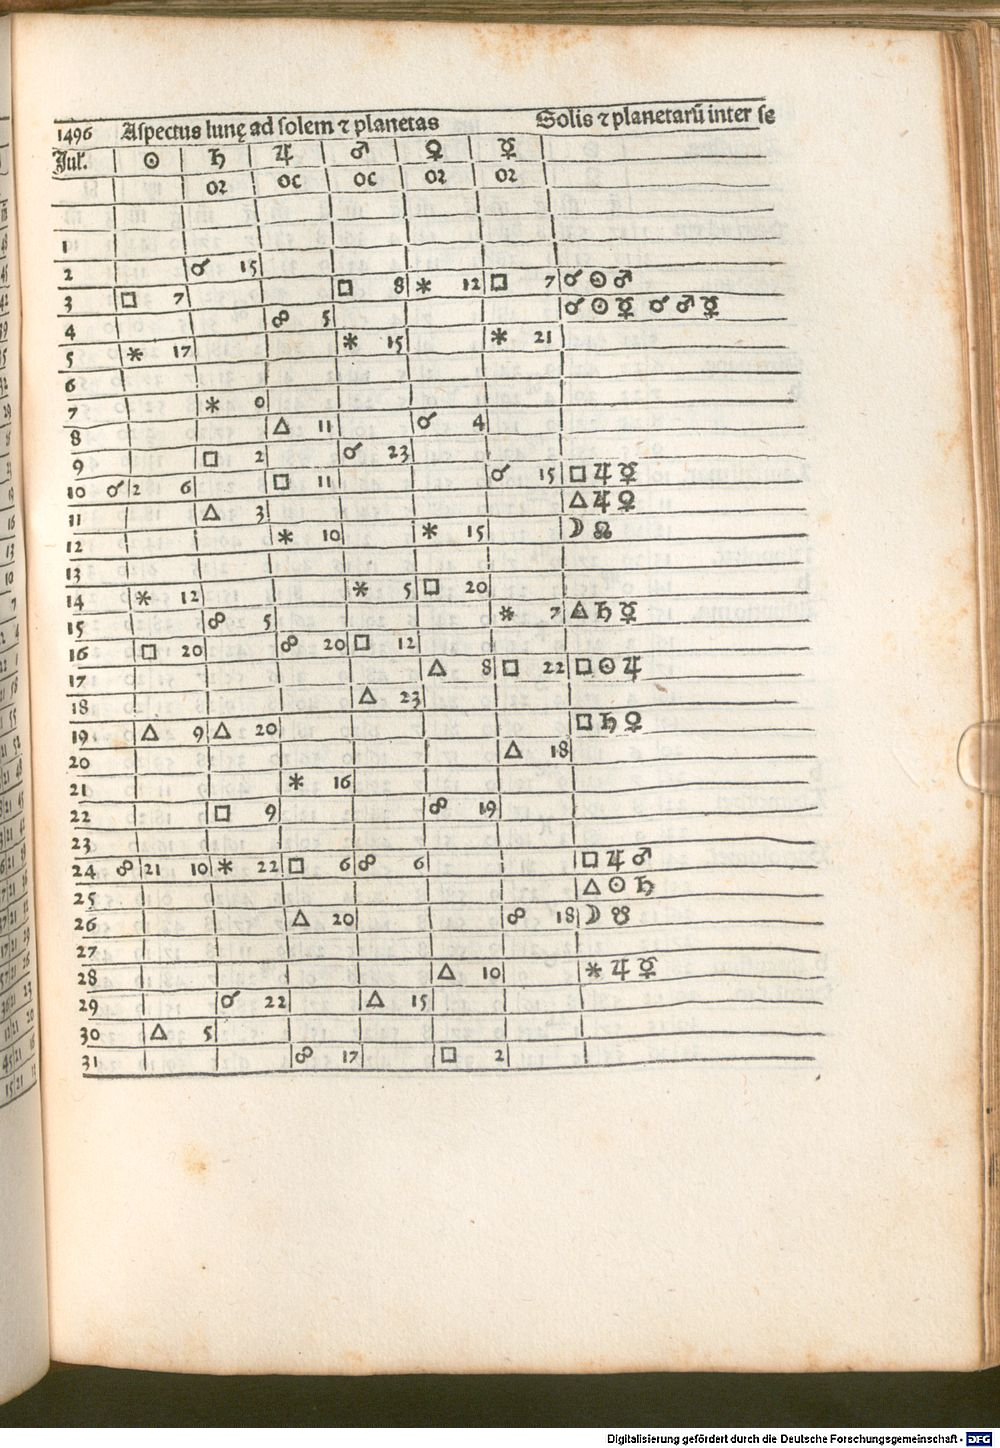 1496 Aspectus lunę ad solem ⁊ planetas Solis ⁊ planetarū inter se
Jul. ☉ ♄ ♃ ♂ ♀ ☿
Oꝛ Oc Oc Oꝛ Oꝛ
1
2 ☌ 15
3 □ 7 □ 8 ⚹ 12 □ 7 ☌ ☉ ♂
4 ☍ 5 ☌ ☉ ☿ ☌ ♂ ☿
5 ⚹ 17 ⚹ 15 ⚹ 21
6
7 ⚹ 0
8 △ 11 ☌ 4
9 □ 2 ☌ 23
10 ☌ 2 6 □ 11 ☌ 15 □ ♃ ☿
11 △ 3 △ ♃ ♀
12 ⚹ 10 ⚹ 15 ☽ ☊
13
14 ⚹ 12 ⚹ 5 □ 20
15 ☍ 5 ⚹ 7 △ ♄ ☿
16 □ 20 ☍ 20 □ 12
17 △ 8 □ 22 □ ☉ ♃
18 △ 23
19 △ 9 △ 20 □ ♄ ♀
20 △ 18
21 ⚹ 16
22 □ 9 ☍ 19
23
24 ☍ 21 10 ⚹ 22 □ 6 ☍ 6 □ ♃ ♂
25 △ ☉ ♄
26 △ 20 ☍ 18 ☽ ☋
27
28 △ 10 ⚹ ♃ ☿
29 ☌ 22 △ 15
30 △ 5
31 ☍ 17 □ 2
Digitalisierung gefördert durch die Deutsche Forschungsgemeinschaft - DFG